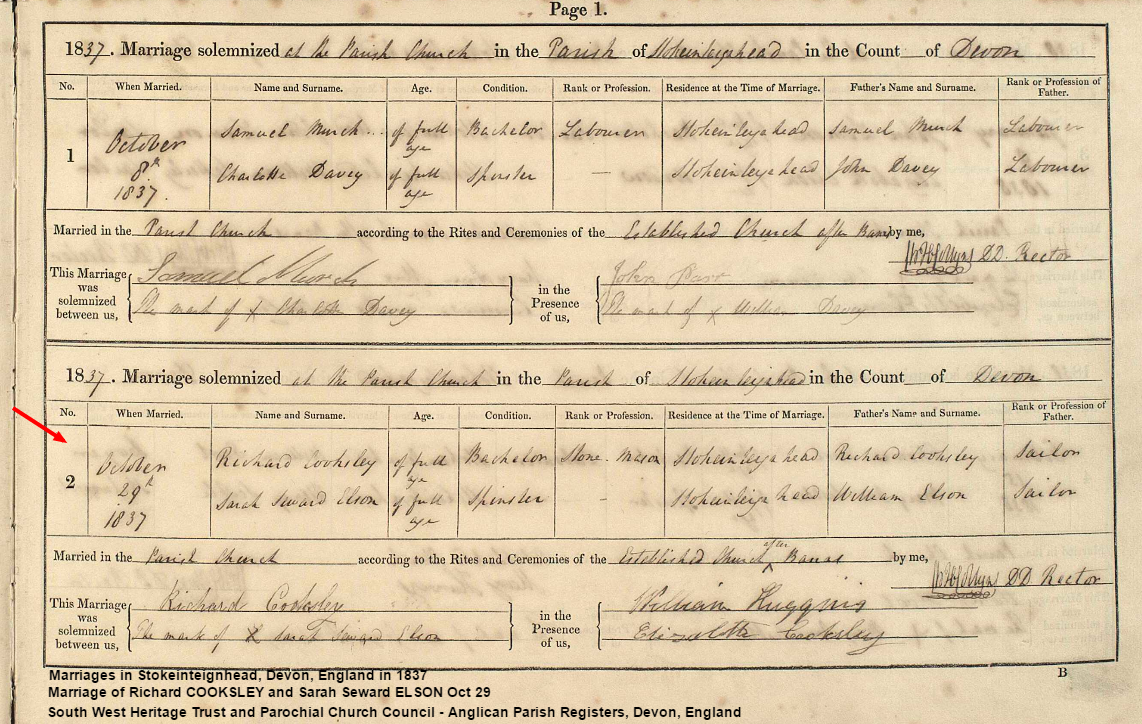 Page 1.
1837. Marriage solemnized at the Parish Church in the Parish of Stokeinteignhead in the Count of Devon
No. When Married. Name and Surname. Age. Condition. Rank or Profession. Residence at the Time of Marriage. Father's Name and Surname. Rank or Profession of Father.
1 October 8th 1837 Samuel Murch of full age Bachelor Labourer Stokeinteignhead Samuel Murch Labourer
Charlotte Davey of full age Spinster — Stokeinteignhead John Davey Labourer
Married in the Parish Church according to the Rites and Ceremonies of the Established Church after Banns by me,
DD. Rector
This Marriage was solemnized between us, Samuel Murch in the Presence of us, John Parr
The mark of x Charlotte Davey The mark of x William Davey
1837. Marriage solemnized at the Parish Church in the Parish of Stokeinteignhead in the Count of Devon
No. When Married. Name and Surname. Age. Condition. Rank or Profession. Residence at the Time of Marriage. Father's Name and Surname. Rank or Profession of Father.
2 October 29th 1837 Richard Cooksley of full age Bachelor Stone Mason Stokeinteignhead Richard Cooksley Sailor
Sarah Seward Elson of full age Spinster - Stokeinteignhead William Elson Sailor
Married in the Parish Church according to the Rites and Ceremonies of the Established Church after Banns by me,
DD Rector
This Marriage was solemnized between us, Richard Cooksley in the Presence of us, William Huggins
The mark of x Sarah Seward Elson Elizabeth Cooksley
B
Marriages in Stokeinteignhead, Devon, England in 1837
Marriage of Richard COOKSLEY and Sarah Seward ELSON Oct 29
South West Heritage Trust and Parochial Church Council - Anglican Parish Registers, Devon, England